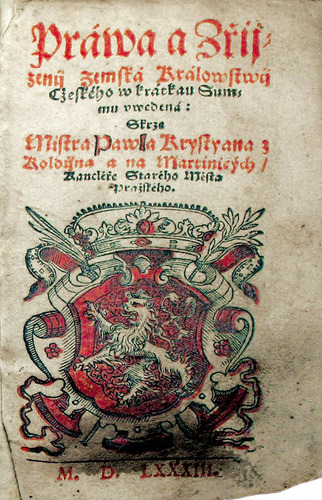 Práwa a Zřij-
zenij Zemská Králowstwij
Czeského w krátkau Sum-
mu vwedená:
Skrze
Mistra Pawla Krystyana z
Koldijna a na Martinicých/
Kancléře Starého Města
Pražského.
M. D. LXXXIII.